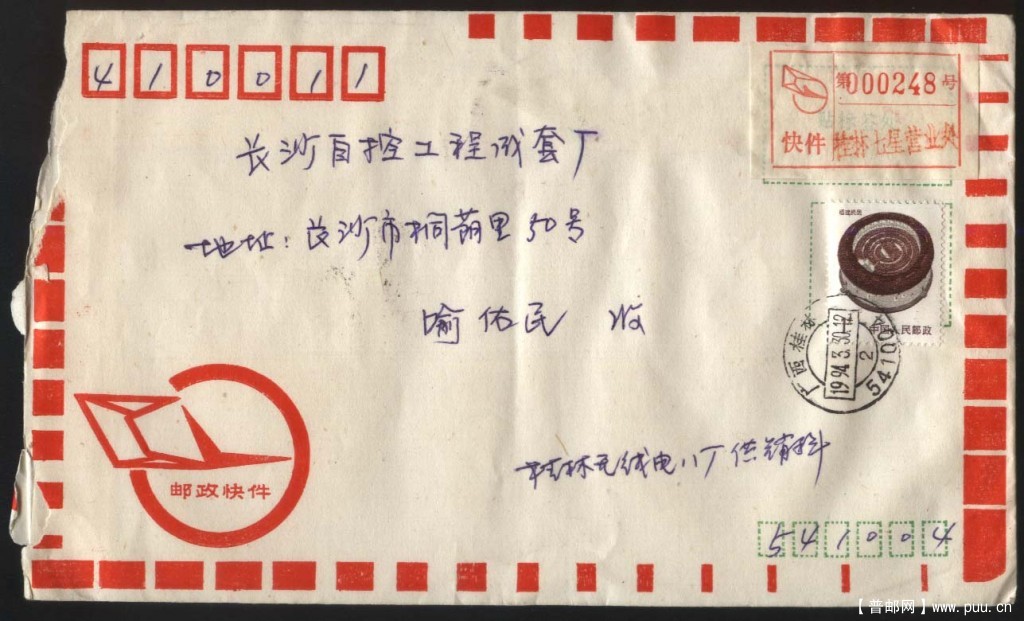 410011
第000248号
快件 桂林七星营业处
长沙自控工程成套厂
地址:长沙市桐荫里50号
喻佑民 收
福建民居
中国人民邮政
广西桂
1994.3.30.12
2
54100
邮政快件
桂林无线电八厂供销科
541004
【普邮网】www.puu.cn